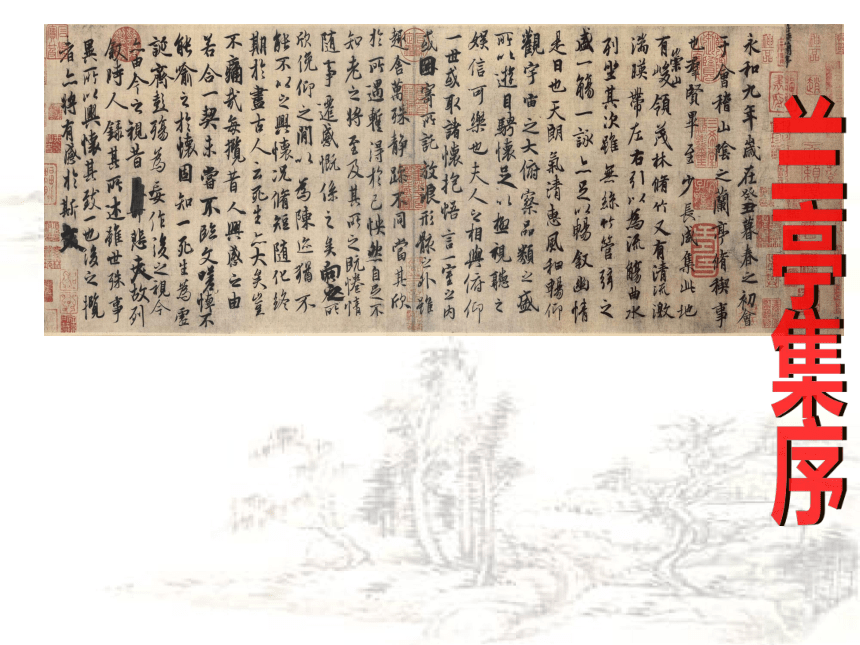 永和九年歲在癸丑暮春之初會
于會稽山陰之蘭亭脩禊事
也羣賢畢至少長咸集此地
有崇山峻領茂林脩竹又有清流激
湍暎帶左右引以為流觴曲水
列坐其次雖無絲竹管弦之
盛一觴一詠亦足以暢敘幽情
是日也天朗氣清惠風和暢仰
觀宇宙之大俯察品類之盛
所以遊目騁懷足以極視聽之
娛信可樂也夫人之相與俯仰
一世或取諸懷抱悟言一室之內
或因寄所託放浪形骸之外雖
趣舍萬殊靜躁不同當其欣
於所遇暫得於己怏然自足不
知老之將至及其所之既惓情
隨事遷感慨係之矣向之所
欣俛仰之閒以為陳迹猶不
能不以之興懷況脩短隨化終
期於盡古人云死生亦大矣豈
不痛哉每攬昔人興感之由
若合一契未嘗不臨文嗟悼不
能喻之於懷固知一死生為虛
誕齊彭殤為妄作後之視今
亦由今之視昔悲夫故列
敘時人錄其所述雖世殊事
異所以興懷其致一也後之攬
者亦將有感於斯文
兰亭集序